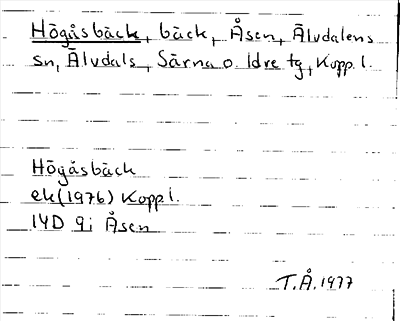 Högåsbäck, bäck, Åsen, Älvdalens
sn, Älvdals, Särna o. Idre tg, Kopp. l.
Högåsbäck
ek(1976) Kopp l.
14D 9i Åsen
T.Å.1977